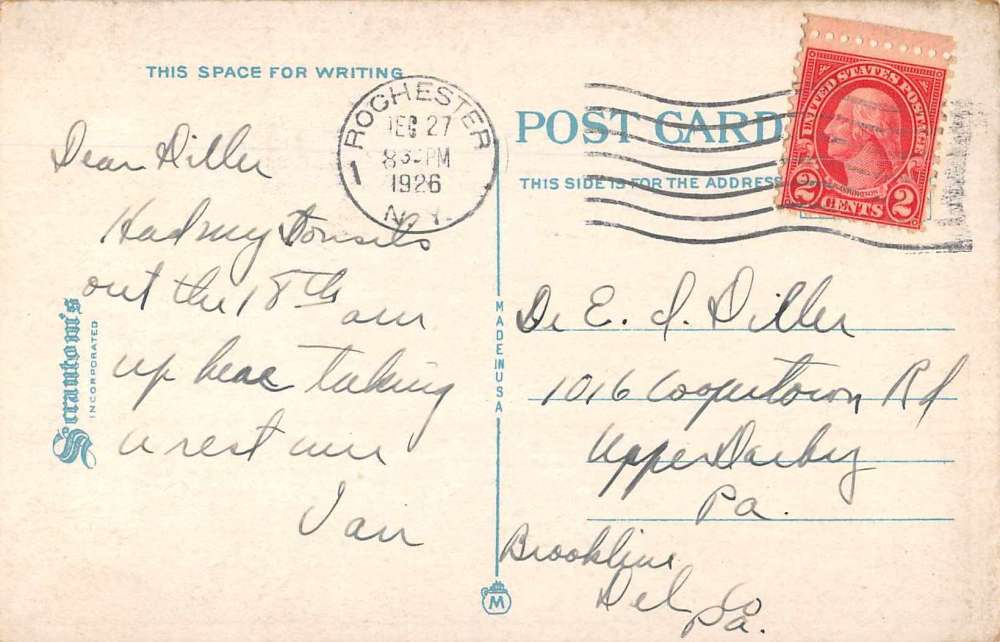 THIS SPACE FOR WRITING
ROCHESTER
1
DEC 27
8 30 PM
1926
N.Y.
POST CARD
THIS SIDE IS FOR THE ADDRESS
UNITED STATES POSTAGE
WASHINGTON
2 CENTS 2
Dear Diller
Had my tonsils
out the 18th am
up here taking
a rest
Scrantom's
INCORPORATED
MADE IN USA
Dr E. I. Diller
1016 Cooperstown Rd
Upper Darby
Pa.
Brookline
Del Co
Pa.
M